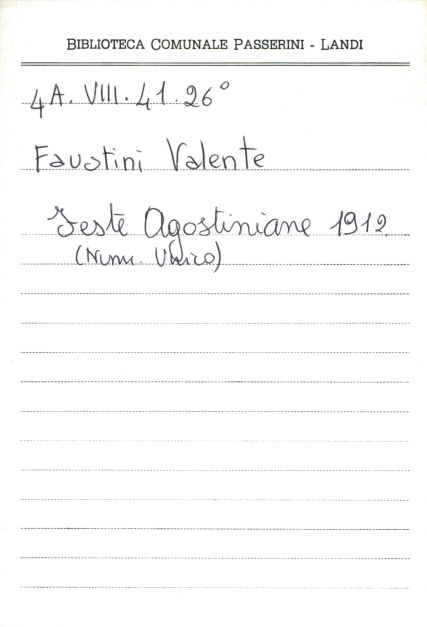 BIBLIOTECA COMUNALE PASSERINI - LANDI
4A. VIII. 41. 26°
Faustini Valente
Feste Agostiniane 1912
(Num. Unico)